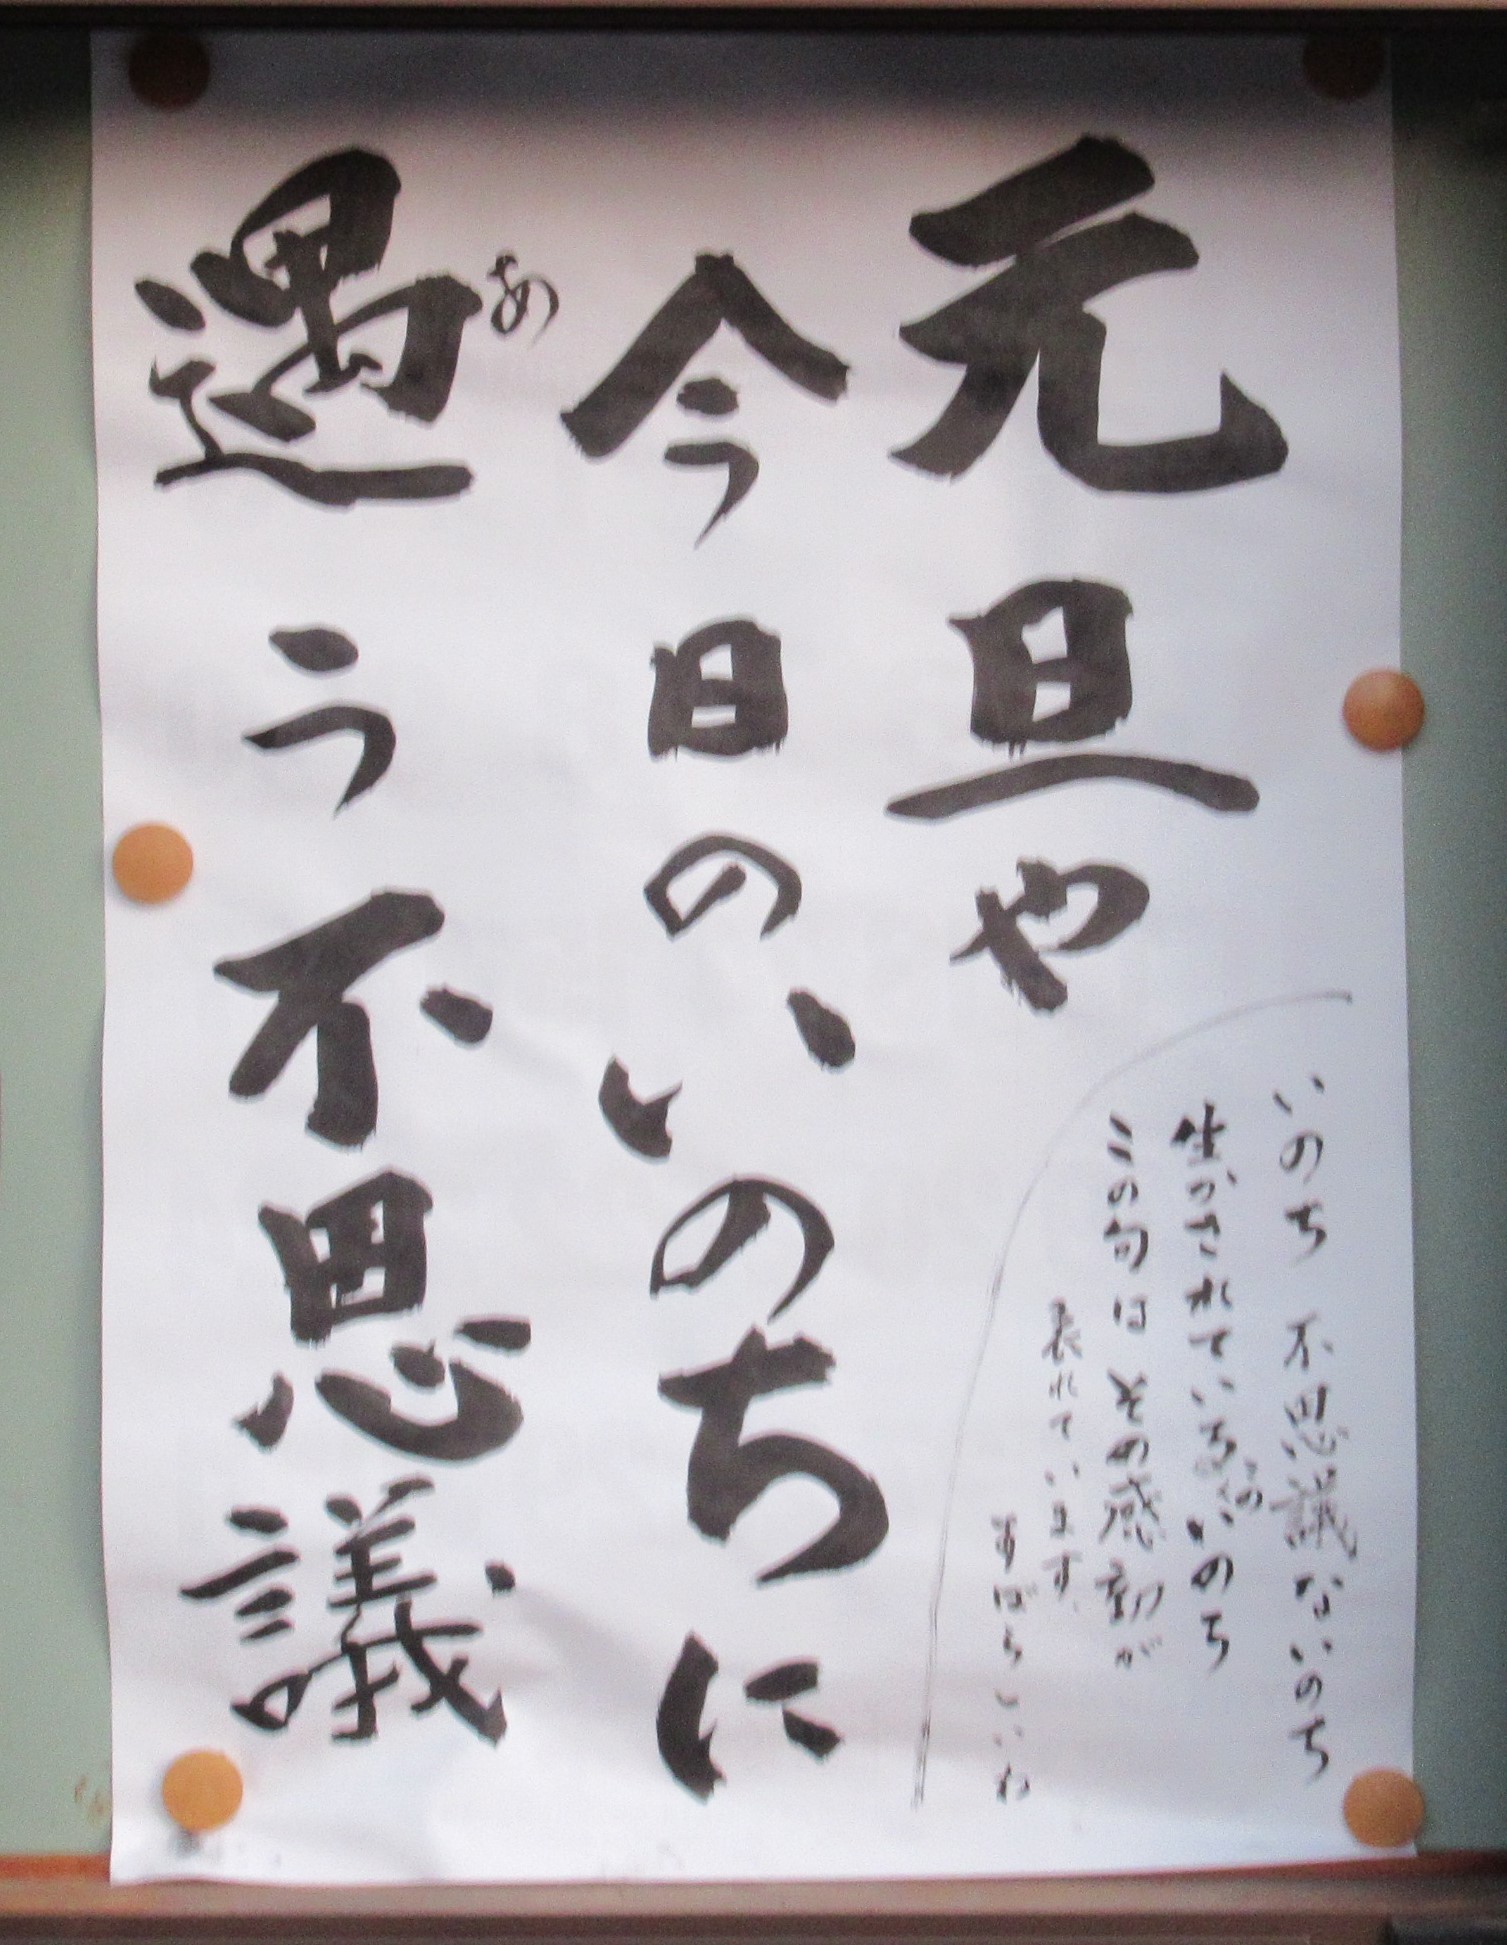 元旦や
今日のいのちに
遇う不思議
あ
いのち 不思議ないのち
生かされているいのち
この
この句は その感動が
表れています
すばらしいわ